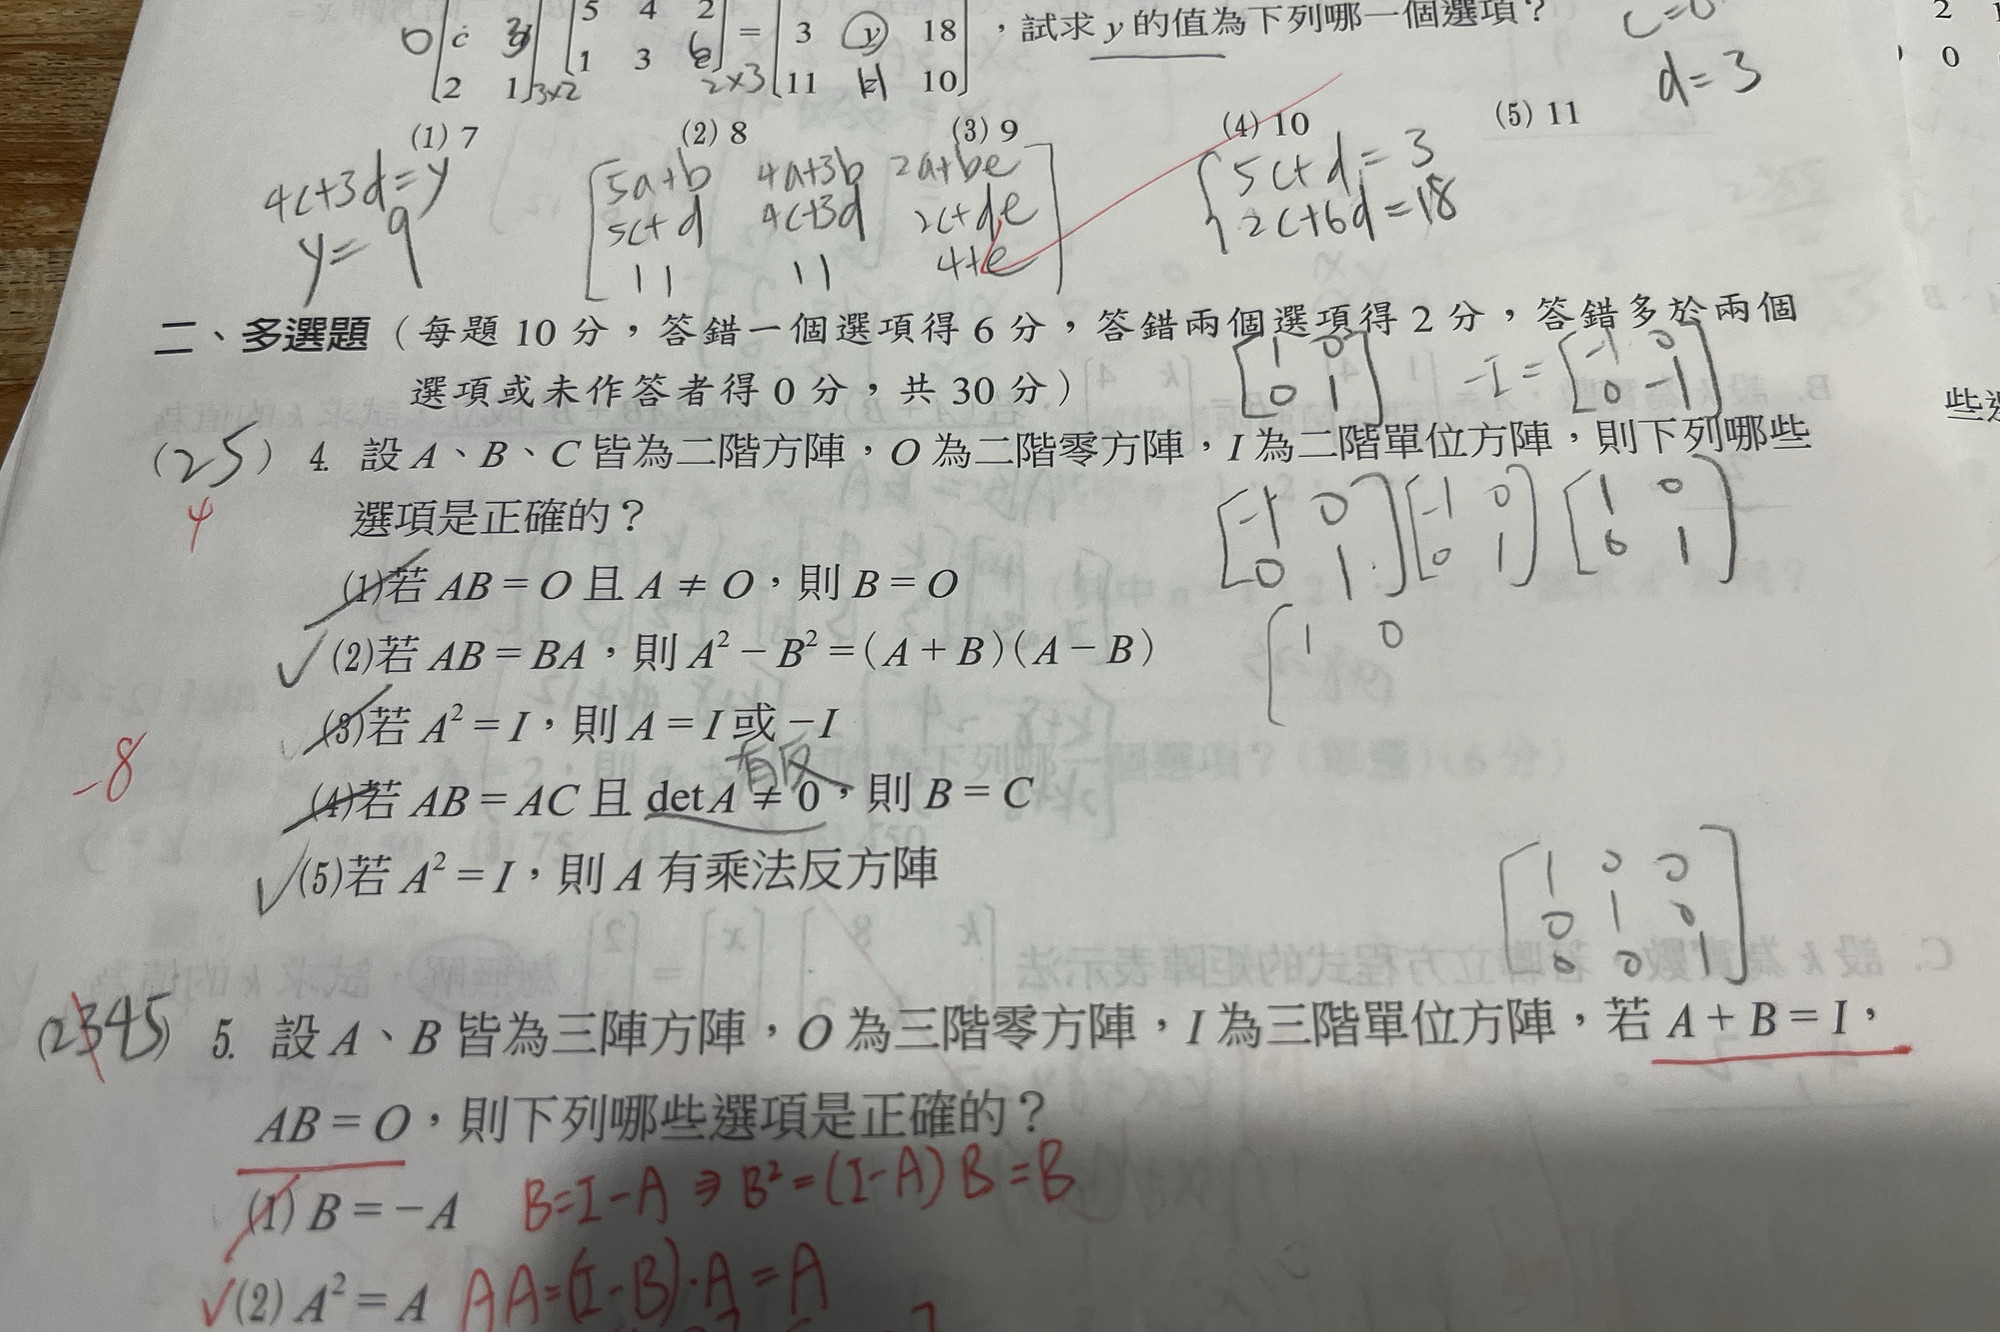 0 [c 3 / 2 1] 3x2 [5 4 2 / 1 3 6] 2x3 = [3 y 18 / 11 11 10],試求 y 的值為下列哪一個選項?
d=3
2
0
(1) 7 (2) 8 (3) 9 (4) 10 (5) 11
4c+3d=y
y=9
5a+b 4a+3b 2a+be
5c+d 4c+3d 2c+de
11 11 4+e
5c+d=3
2c+6d=18
二、多選題(每題 10 分,答錯一個選項得 6 分,答錯兩個選項得 2 分,答錯多於兩個
選項或未作答者得 0 分,共 30 分)
[1 0 / 0 1] -I=[-1 0 / 0 -1]
些
(25) 4. 設 A、B、C 皆為二階方陣,O 為二階零方陣,I 為二階單位方陣,則下列哪些
4
選項是正確的?
[-1 0 / 0 1] [-1 0 / 0 1] [1 0 / 0 1]
(1)若 AB = O 且 A ≠ O,則 B = O
[1 0
(2)若 AB = BA,則 A² − B² = (A + B)(A − B)
(3)若 A² = I,則 A = I 或 −I
有反
-8
(4)若 AB = AC 且 det A ≠ 0,則 B = C
(5)若 A² = I,則 A 有乘法反方陣
[1 0 0 / 0 1 0 / 0 0 1]
(2345) 5. 設 A、B 皆為三陣方陣,O 為三階零方陣,I 為三階單位方陣,若 A + B = I,
AB = O,則下列哪些選項是正確的?
(1) B = −A B=I-A ⇒ B²=(I-A)B=B
(2) A² = A AA=(I-B)·A=A